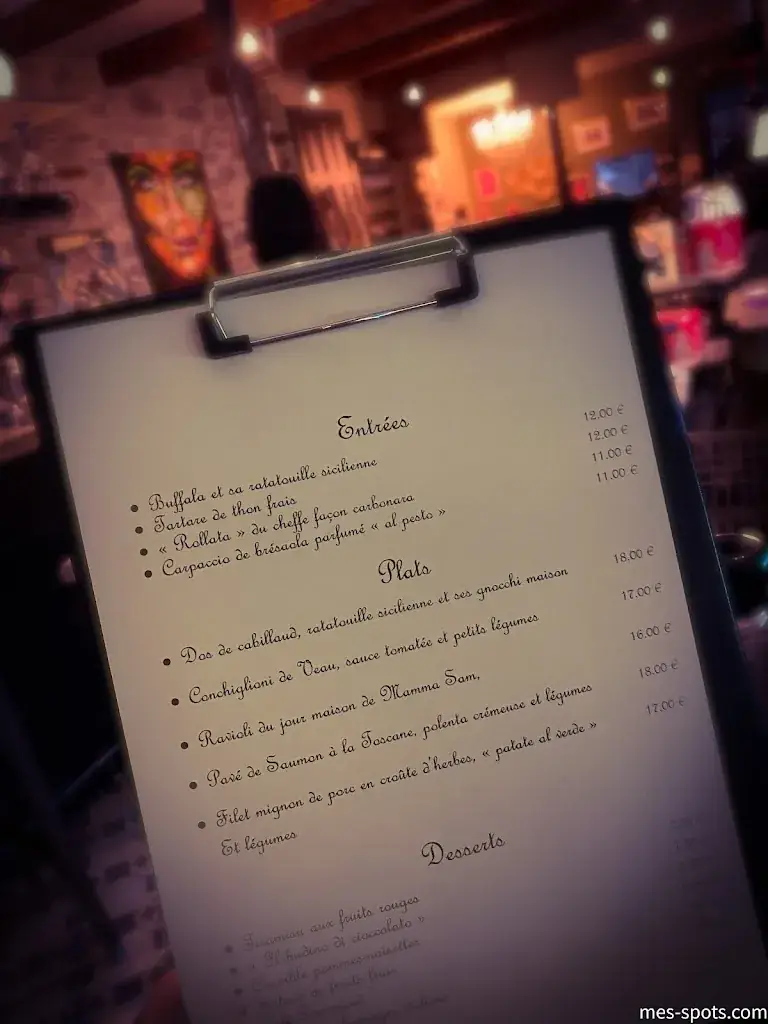 Entrées
Buffala et sa ratatouille sicilienne 12.00 €
Tartare de thon frais 12.00 €
« Rollata » du cheffe façon carbonara 11.00 €
Carpaccio de brésaola parfumé « al pesto » 11.00 €
Plats
Dos de cabillaud, ratatouille sicilienne et ses gnocchi maison 18.00 €
Conchiglioni de Veau, sauce tomatée et petits légumes 17.00 €
Ravioli du jour maison de Mamma Sam, 16.00 €
Pavé de Saumon à la Toscane, polenta crémeuse et légumes 18.00 €
Filet mignon de porc en croûte d'herbes, « patate al verde » 17.00 €
Et légumes
Desserts
aux fruits rouges
di cioccolato »
mes-spots.com